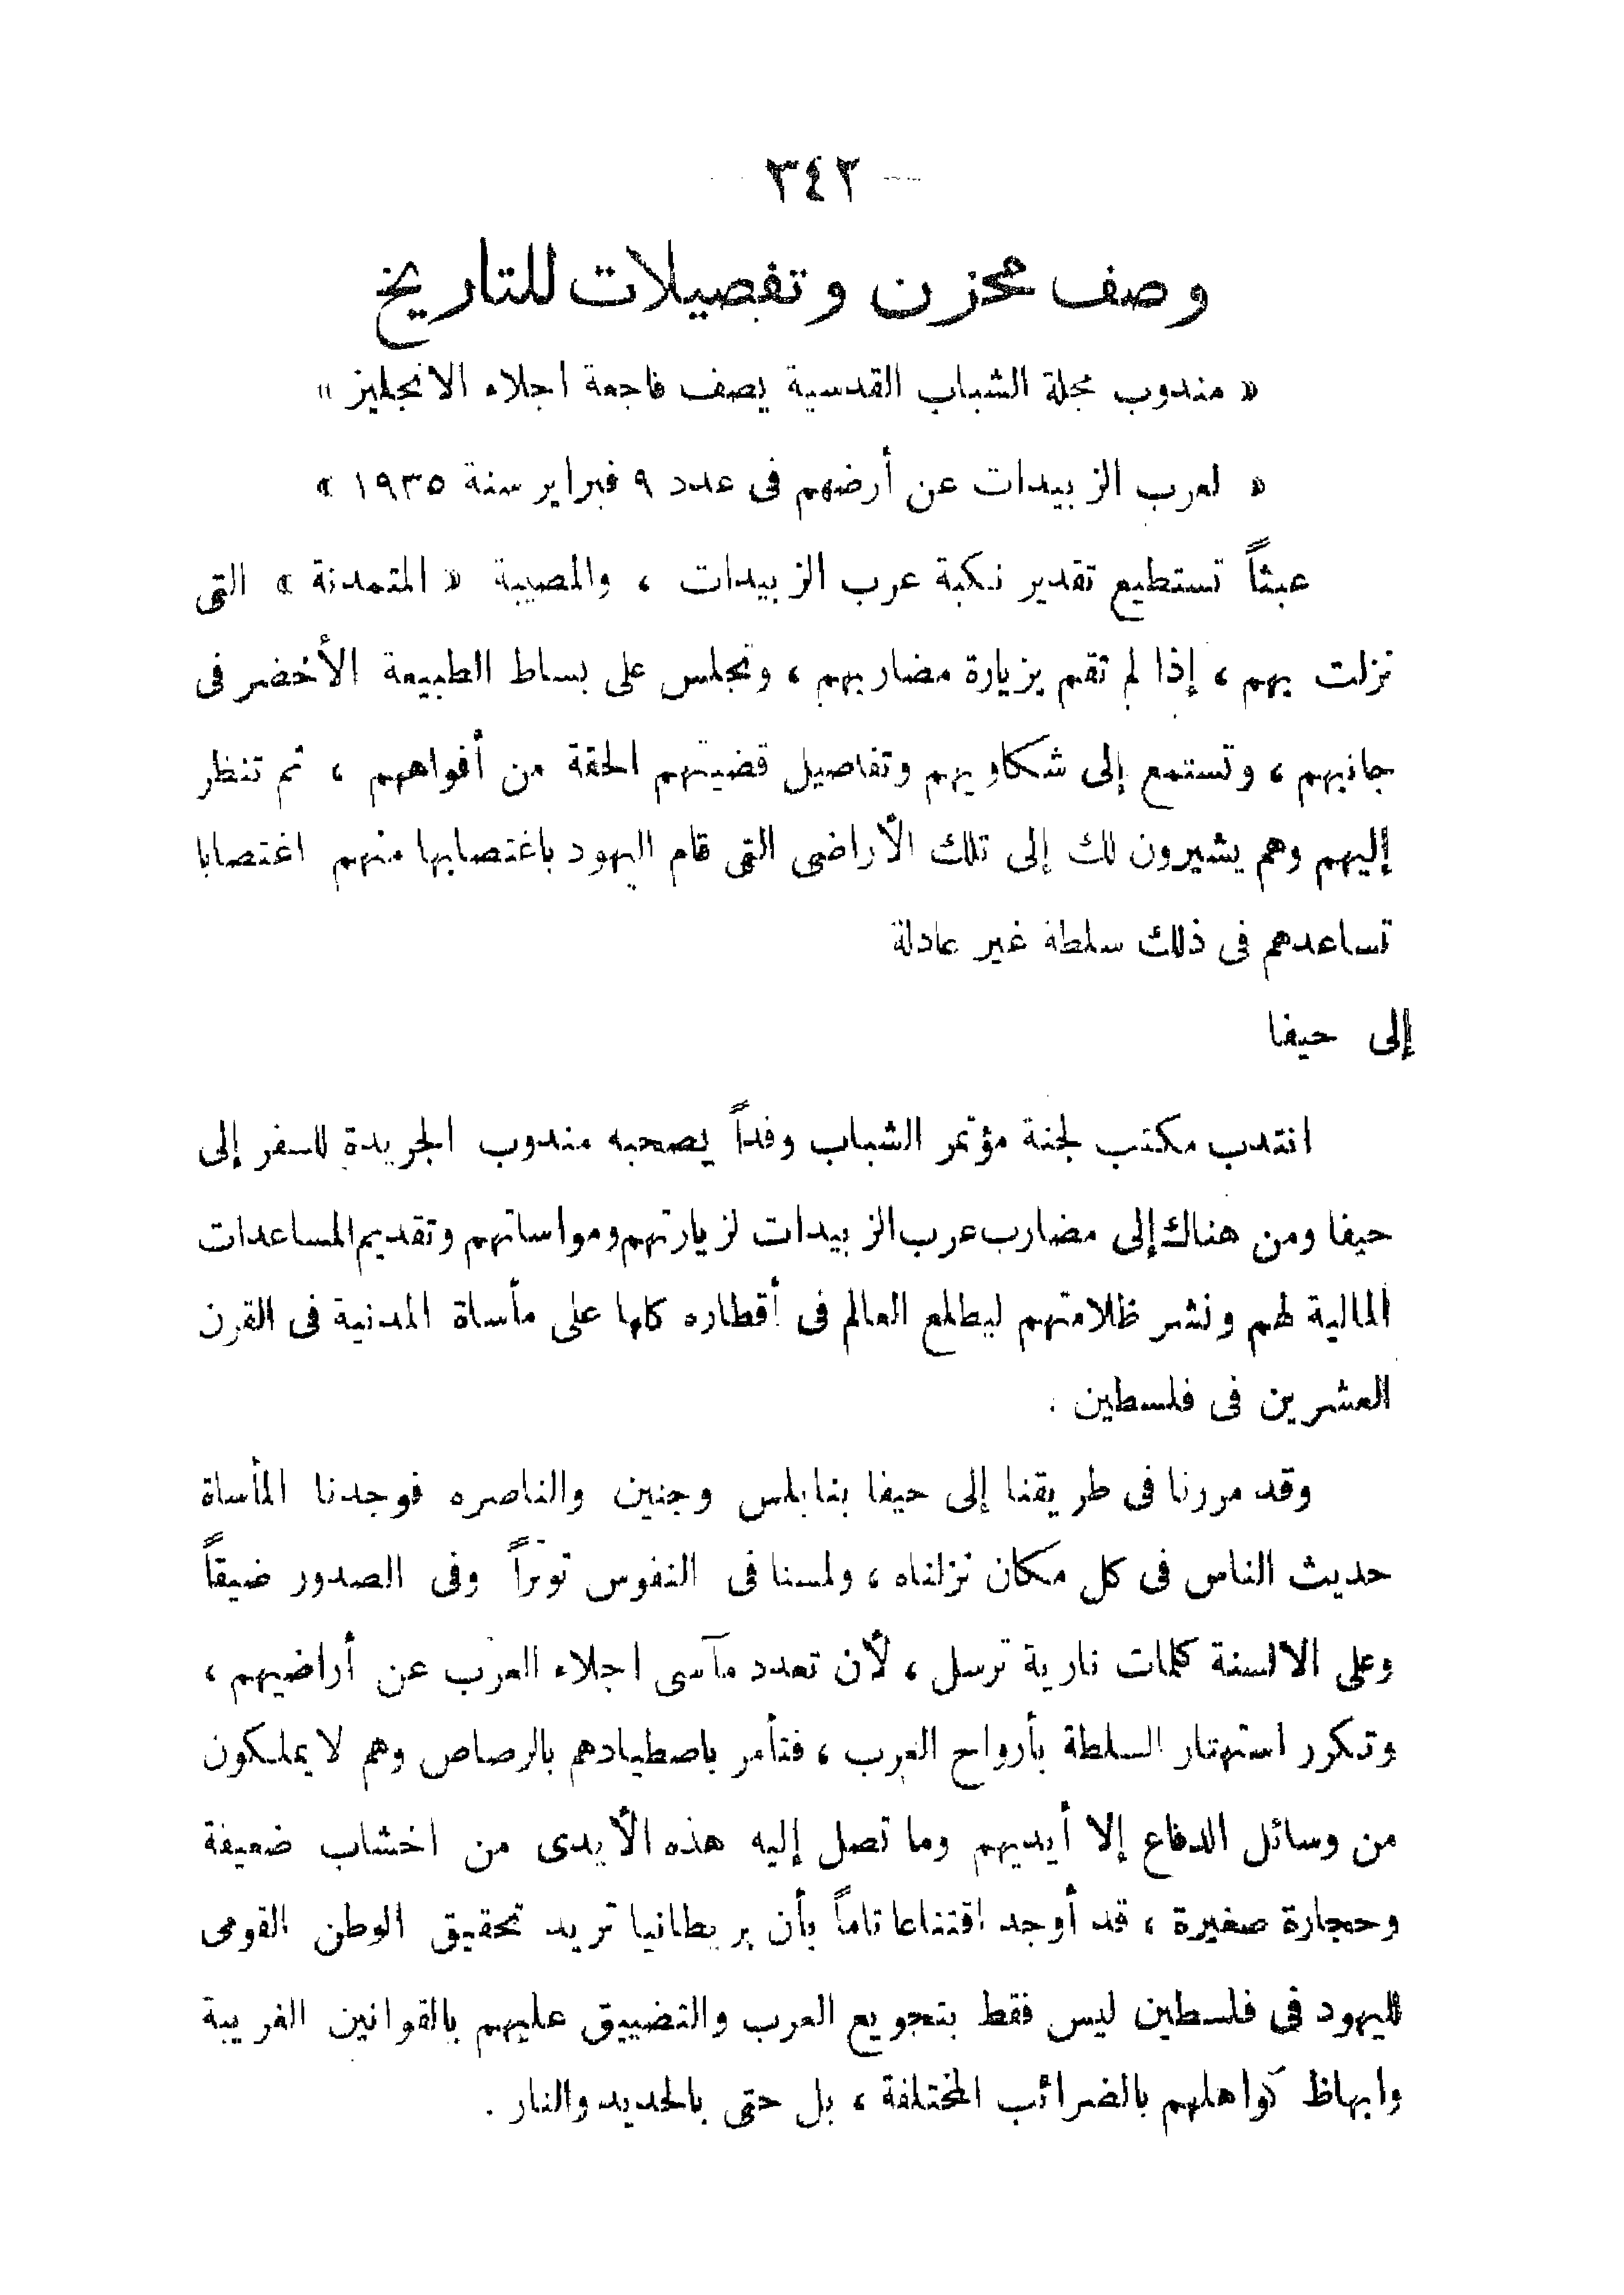 ٣٤٢ —
وصف محزن وتفصيلات للتاريخ
« مندوب مجلة الشباب القدسية يصف فاجعة اجلاء الانجليز »
« لعرب الزبيدات عن أرضهم فى عدد ٩ فبراير سنة ١٩٣٥ »
عبثاً تستطيع تقدير نكبة عرب الزبيدات ، والمصيبة « المتمدنة » التى
نزلت بهم ، إذا لم تقم بزيارة مضاربهم ، وتجلس على بساط الطبيعة الأخضر فى
جانبهم ، وتستمع إلى شكاويهم وتفاصيل قضيتهم الحقة من أفواههم ، ثم تنظر
إليهم وهم يشيرون لك إلى تلك الأراضى التى قام اليهود باغتصابها منهم اغتصابا
تساعدهم فى ذلك سلطة غير عادلة
إلى حيفا
انتدب مكتب لجنة مؤتمر الشباب وفداً يصحبه مندوب الجريدة للسفر إلى
حيفا ومن هناك إلى مضارب عرب الزبيدات لزيارتهم ومواساتهم وتقديم المساعدات
المالية لهم ونشر ظلامتهم ليطلع العالم فى أقطاره كلها على مأساة المدنية فى القرن
العشرين فى فلسطين .
وقد مررنا فى طريقنا إلى حيفا بنابلس وجنين والناصره فوجدنا المأساة
حديث الناس فى كل مكان نزلناه ، ولمسنا فى النفوس توتراً وفى الصدور ضيقاً
وعلى الالسنة كلمات نارية ترسل ، لأن تعدد مآسى اجلاء العرب عن أراضيهم ،
وتكرر استهتار السلطة بأرواح العرب ، فتأمر باصطيادهم بالرصاص وهم لا يملكون
من وسائل الدفاع إلا أيديهم وما تصل إليه هذه الأيدى من اخشاب ضعيفة
وحجارة صغيرة ، قد أوجد اقتناعا تاماً بأن بريطانيا تريد تحقيق الوطن القومى
لليهود فى فلسطين ليس فقط بتجويع العرب والتضييق عليهم بالقوانين الغريبة
وابهاظ كواهلهم بالضرائب المختلفة ، بل حتى بالحديد والنار .